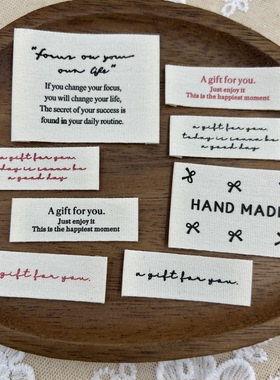 "focus on your
own life"
If you change your focus,
you will change your life,
The secret of your success is
found in your daily routine.
A gift for you.
Just enjoy it
This is the happiest moment
a gift for you.
today is gonna be
a good day
a gift for you.
today is gonna be
a good day
HAND MADE
A gift for you.
Just enjoy it
This is the happiest moment
a gift for you.
a gift for you.